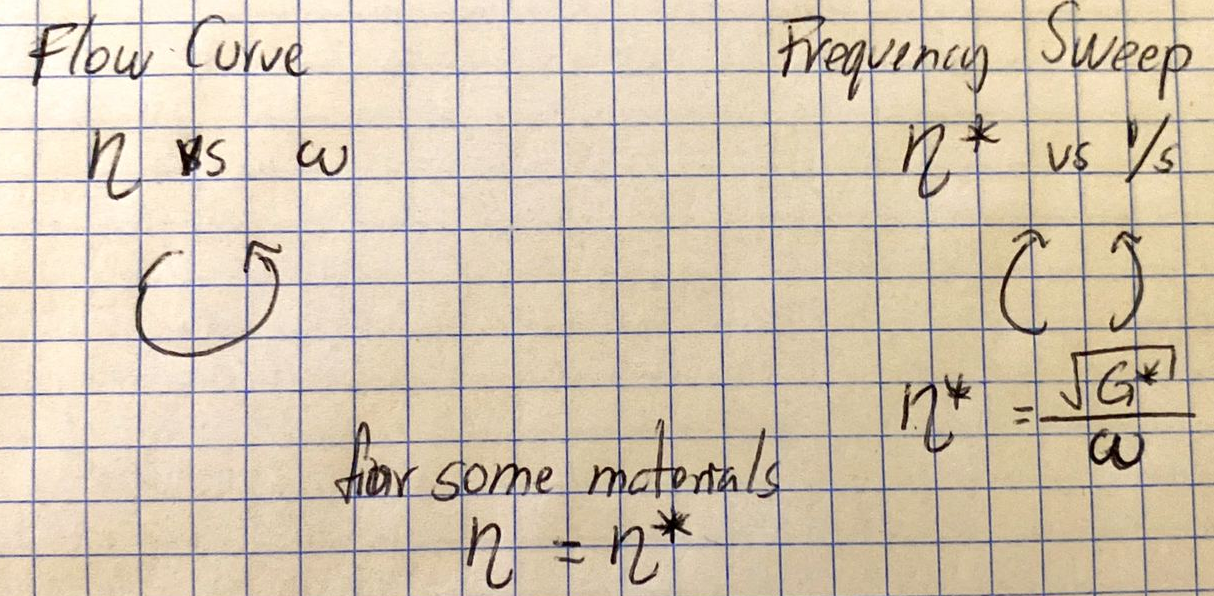 Flow Curve
η vs ω
Frequency Sweep
η* vs 1/s
η* = √G* / ω
for some materials
η = η*